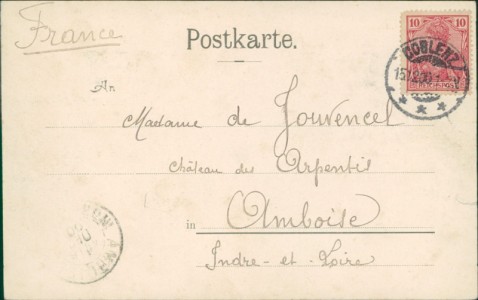 France
Postkarte.
10 10
COBLENZ
An
Madame de Jouvencel
Château des Arpentis
in Amboise
Indre-et-Loire